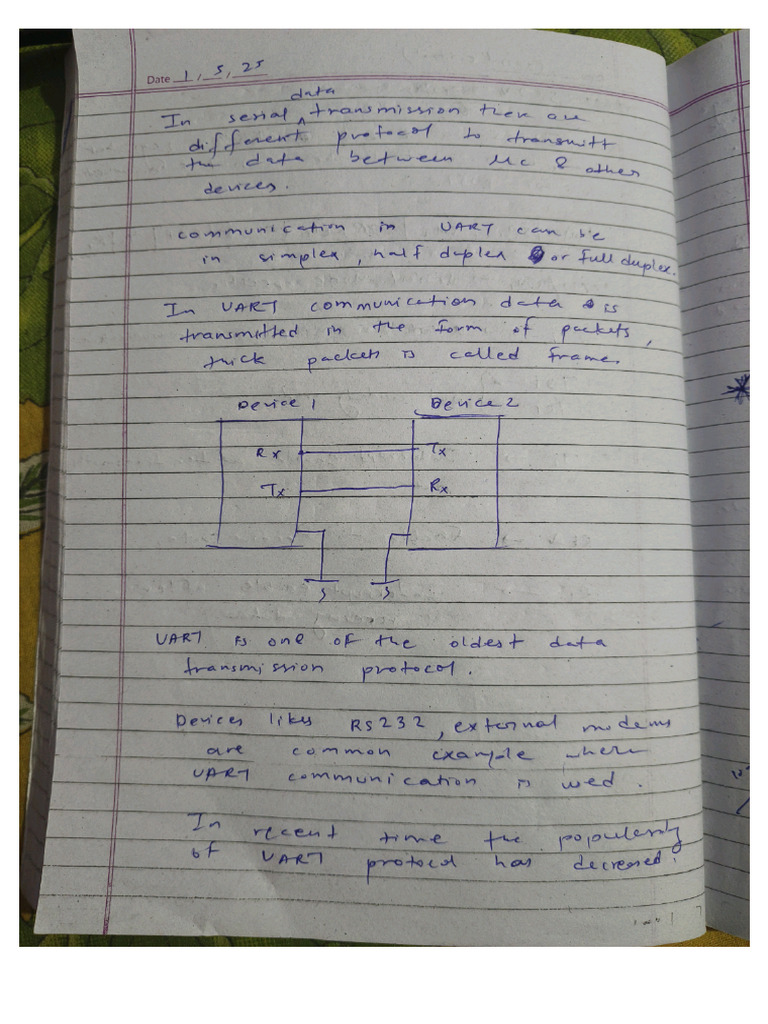 Date 1, 5, 25
data
In serial ^ transmission there are
different protocol to transmitt
the data between Mc & other
devices.
communication in UART can be
in simplex, half duplex or full duplex.
In UART communication data is
transmitted in the form of packets,
packets is called frame.
Device 1 Device 2
Rx Tx
Tx Rx
UART is one of the oldest data
transmission protocol.
Devices likes RS232, external modems
are common example where
UART communication is used.
In recent time the popularity
of UART protocol has decreased.